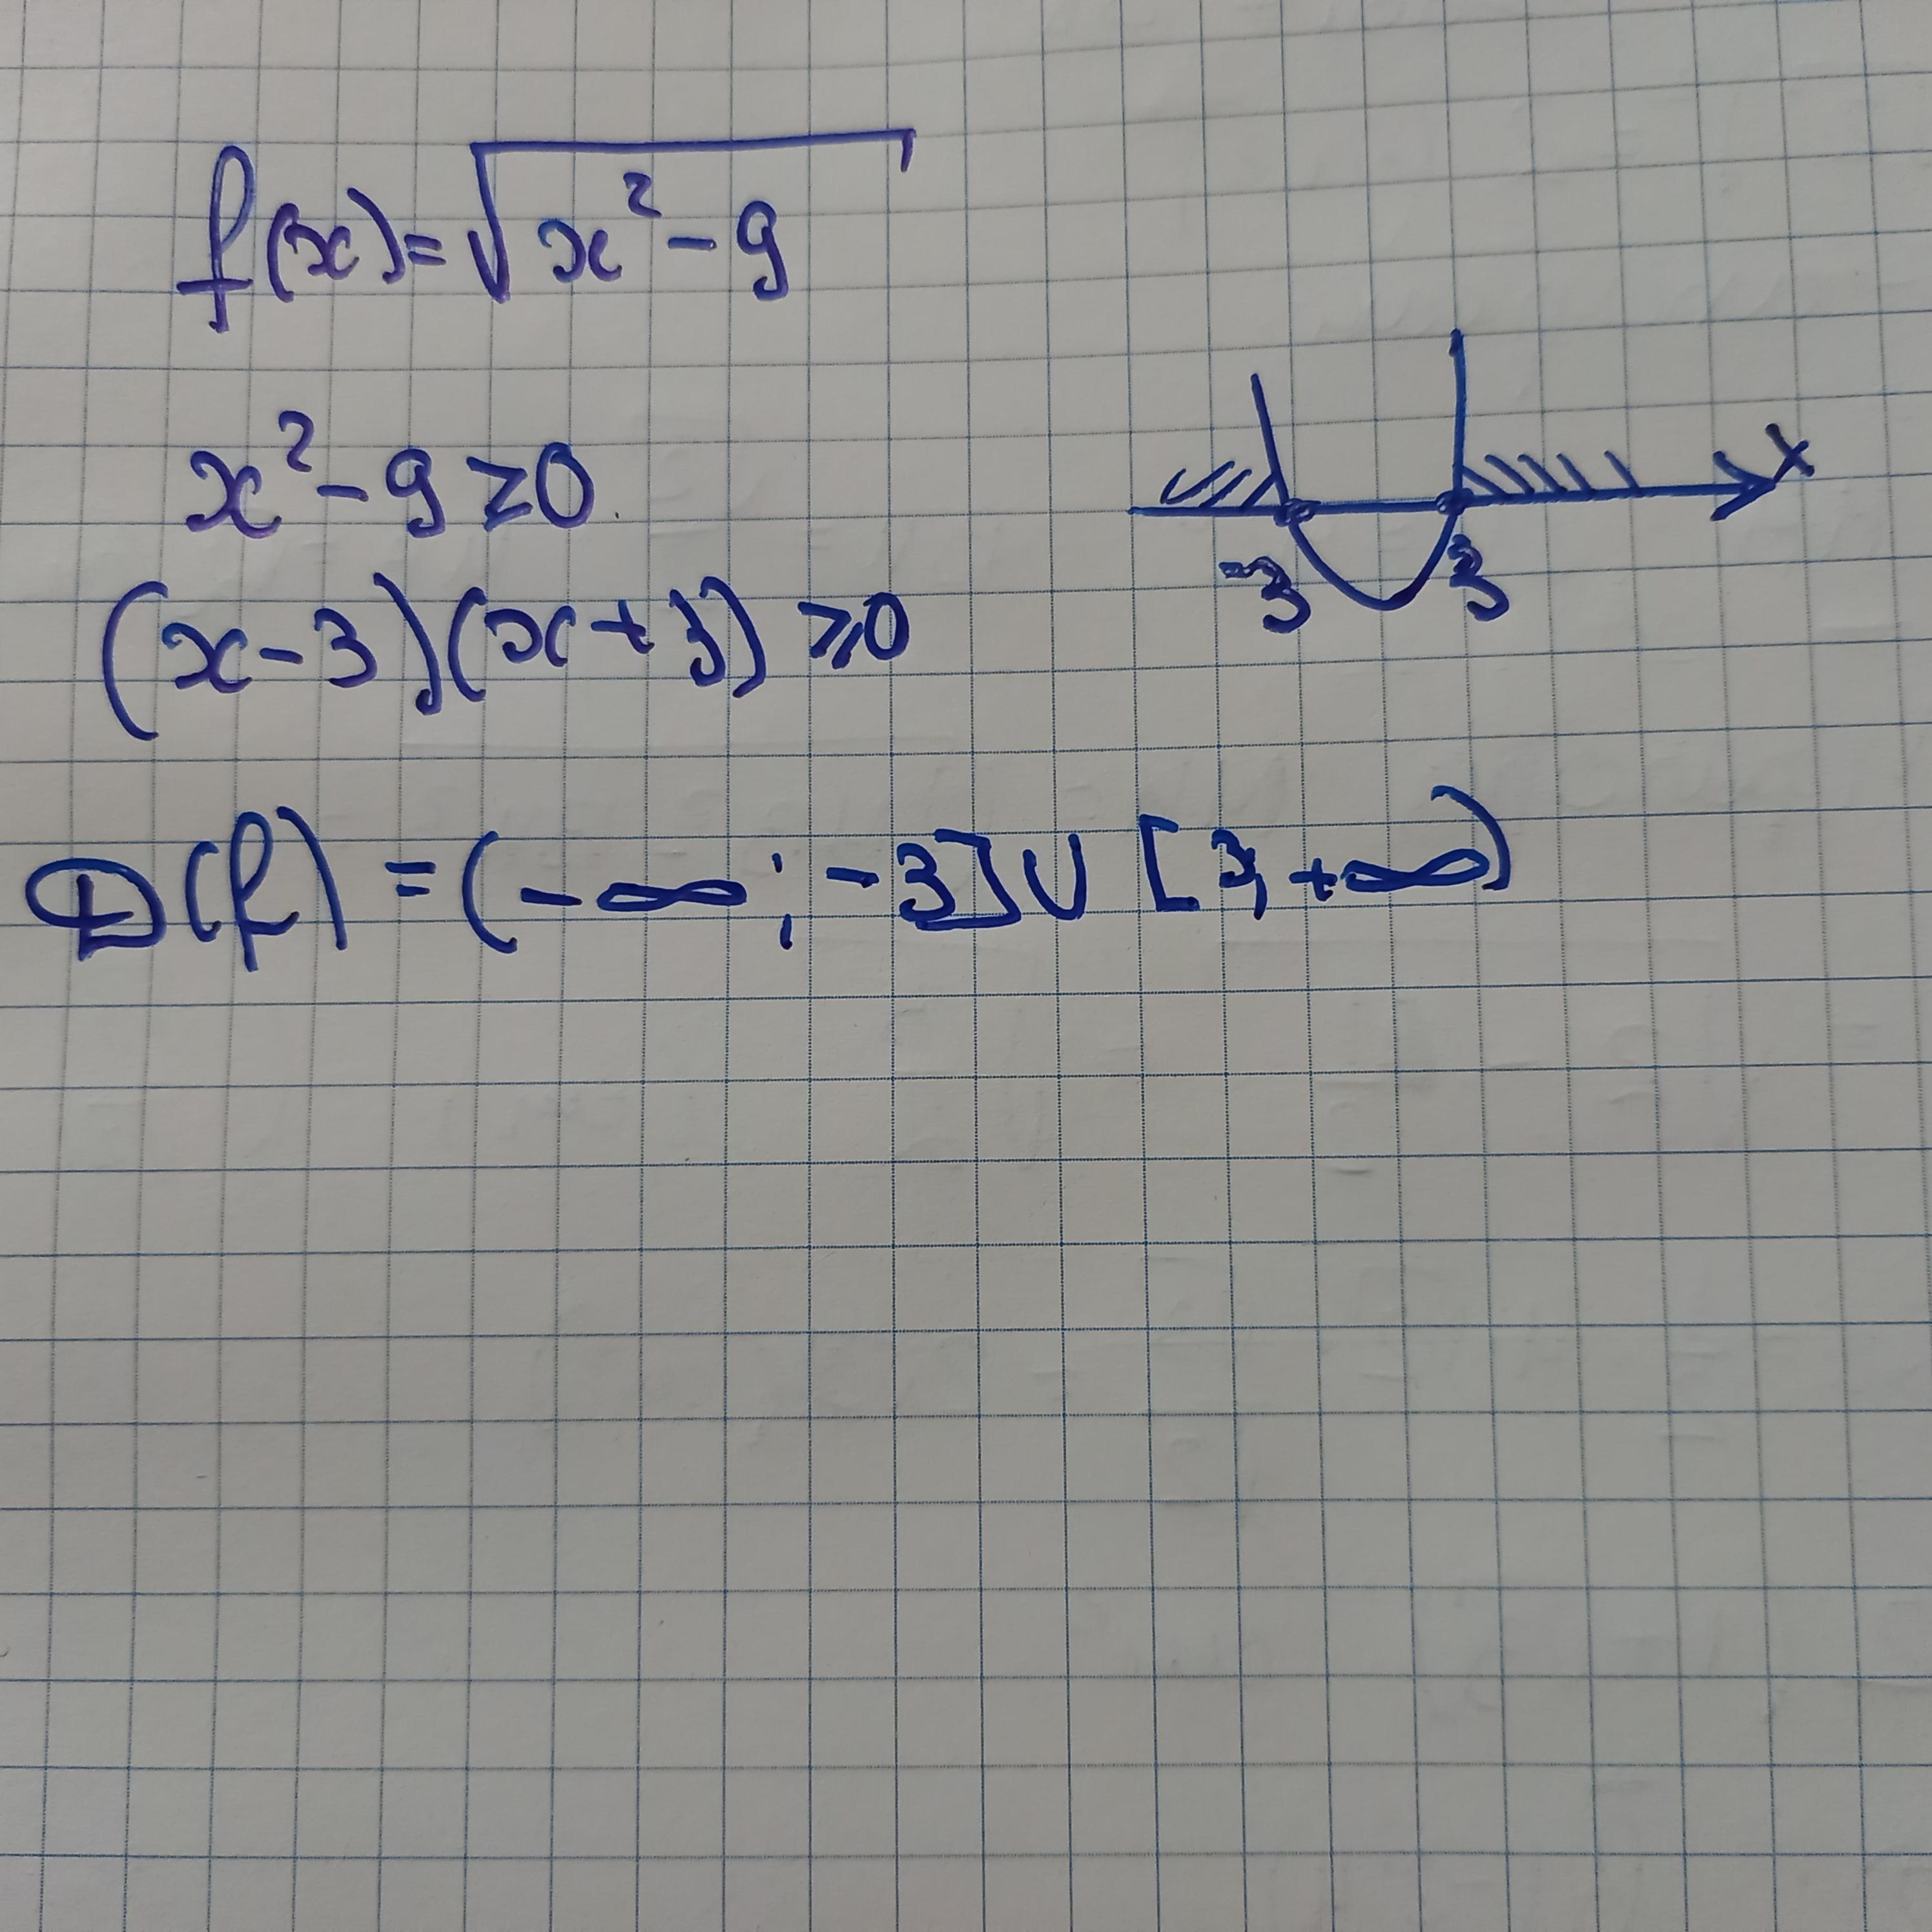 f(x)=√x²-9
x²-9≥0
(x-3)(x+3)≥0
x
-3 3
D(f)=(-∞;-3]∪[3,+∞)